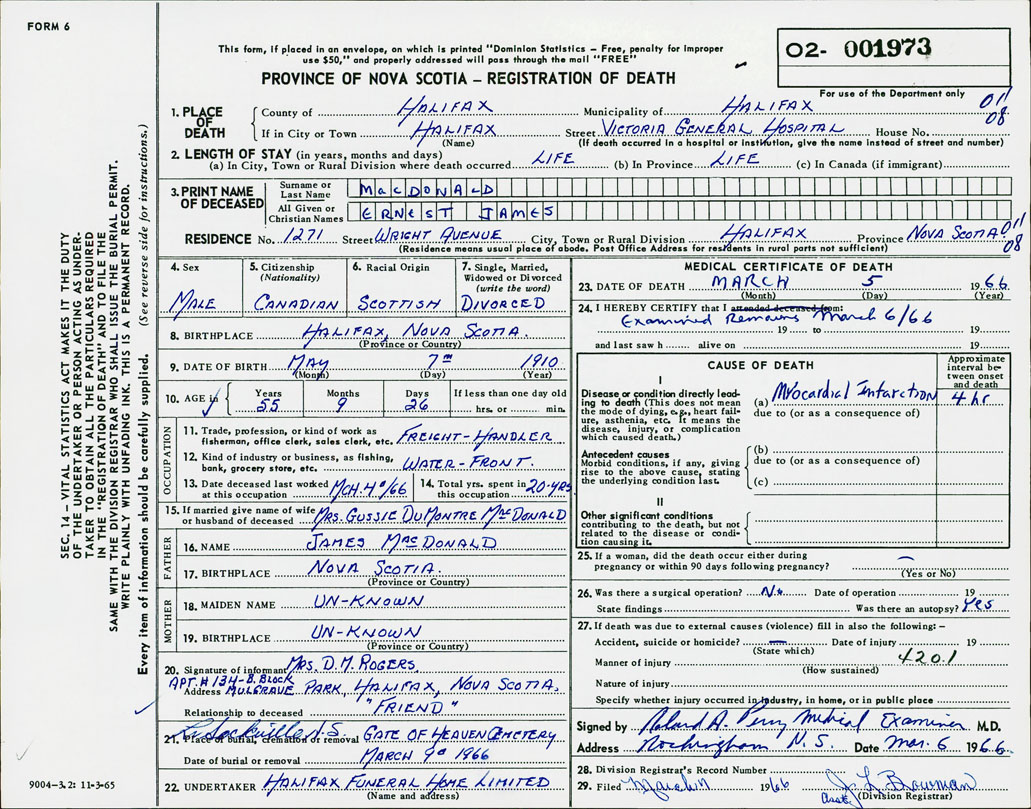 FORM 6
This form, if placed in an envelope, on which is printed "Dominion Statistics – Free, penalty for improper
use $50," and properly addressed will pass through the mail "FREE"
PROVINCE OF NOVA SCOTIA – REGISTRATION OF DEATH
O2- 001973
For use of the Department only
011
08
1. PLACE OF DEATH
County of HALIFAX Municipality of HALIFAX
If in City or Town HALIFAX Street VICTORIA GENERAL HOSPITAL House No.
(Name) (If death occurred in a hospital or institution, give the name instead of street and number)
2. LENGTH OF STAY (in years, months and days)
(a) In City, Town or Rural Division where death occurred LIFE (b) In Province LIFE (c) In Canada (if immigrant)
3. PRINT NAME OF DECEASED
Surname or Last Name MACDONALD
All Given or Christian Names ERNEST JAMES
RESIDENCE No. 1271 Street WRIGHT AVENUE City, Town or Rural Division HALIFAX Province NOVA SCOTIA 011
08
(Residence means usual place of abode. Post Office Address for residents in rural parts not sufficient)
4. Sex
MALE
5. Citizenship
(Nationality)
CANADIAN
6. Racial Origin
SCOTTISH
7. Single, Married,
Widowed or Divorced
(write the word)
DIVORCED
8. BIRTHPLACE HALIFAX, NOVA SCOTIA.
(Province or Country)
9. DATE OF BIRTH MAY 7TH 1910
(Month) (Day) (Year)
10. AGE in
Years Months Days If less than one day old
55 9 26 hrs. or min.
OCCUPATION
11. Trade, profession, or kind of work as
fisherman, office clerk, sales clerk, etc. FREIGHT-HANDLER
12. Kind of industry or business, as fishing,
bank, grocery store, etc. WATER-FRONT.
13. Date deceased last worked
at this occupation MCH. 4th/66
14. Total yrs. spent in
this occupation 20-YRS
15. If married give name of wife
or husband of deceased MRS. GUSSIE DUMONTRE MACDONALD
FATHER
16. NAME JAMES MACDONALD
17. BIRTHPLACE NOVA SCOTIA.
(Province or Country)
MOTHER
18. MAIDEN NAME UN-KNOWN
19. BIRTHPLACE UN-KNOWN
(Province or Country)
20. Signature of informant MRS. D.M. ROGERS
APT. # 134-B. BLOCK
Address MULGRAVE PARK, HALIFAX, NOVA SCOTIA,
Relationship to deceased "FRIEND"
Sackville N.S.
21. Place of burial, cremation or removal GATE OF HEAVEN CEMETERY
Date of burial or removal MARCH 9th 1966
22. UNDERTAKER HALIFAX FUNERAL HOME LIMITED
(Name and address)
MEDICAL CERTIFICATE OF DEATH
23. DATE OF DEATH MARCH 5 1966
(Month) (Day) (Year)
24. I HEREBY CERTIFY that I attended deceased from:
Examined Remains March 6/66
19 to 19
and last saw h alive on 19
CAUSE OF DEATH
Approximate
interval be-
tween onset
and death
I
Disease or condition directly lead-
ing to death (This does not mean
the mode of dying, e.g., heart fail-
ure, asthenia, etc. It means the
disease, injury, or complication
which caused death.)
(a) Myocardial Infarction 4 hr
due to (or as a consequence of)
Antecedent causes
Morbid conditions, if any, giving
rise to the above cause, stating
the underlying condition last.
(b)
due to (or as a consequence of)
(c)
II
Other significant conditions
contributing to the death, but not
related to the disease or condi-
tion causing it.
25. If a woman, did the death occur either during
pregnancy or within 90 days following pregnancy?
(Yes or No)
26. Was there a surgical operation? No Date of operation 19
State findings Was there an autopsy? Yes
27. If death was due to external causes (violence) fill in also the following: –
Accident, suicide or homicide? — Date of injury 19
(State which)
Manner of injury 4201
(How sustained)
Nature of injury
Specify whether injury occurred in industry, in home, or in public place
Signed by Roland A. Perry Medical Examiner M.D.
Address Rockingham N.S. Date Mar. 6 1966
28. Division Registrar's Record Number
29. Filed 1966 J. L. Bowman
Asst (Division Registrar)
SEC. 14 – VITAL STATISTICS ACT MAKES IT THE DUTY
OF THE UNDERTAKER OR PERSON ACTING AS UNDER-
TAKER TO OBTAIN ALL THE PARTICULARS REQUIRED
IN THE "REGISTRATION OF DEATH" AND TO FILE THE
SAME WITH THE DIVISION REGISTRAR WHO SHALL ISSUE THE BURIAL PERMIT.
WRITE PLAINLY WITH UNFADING INK. THIS IS A PERMANENT RECORD.
Every item of information should be carefully supplied. (See reverse side for instructions.)
9004-3.2: 11-3-65